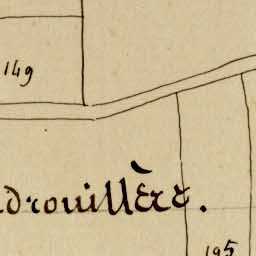 149
drouillère.
195